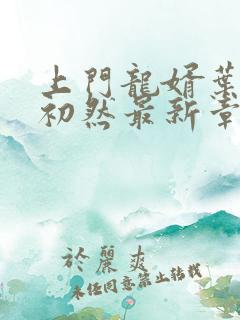 上門龍婿葉
初然最新章
於麗爽
未經同意禁止轉載